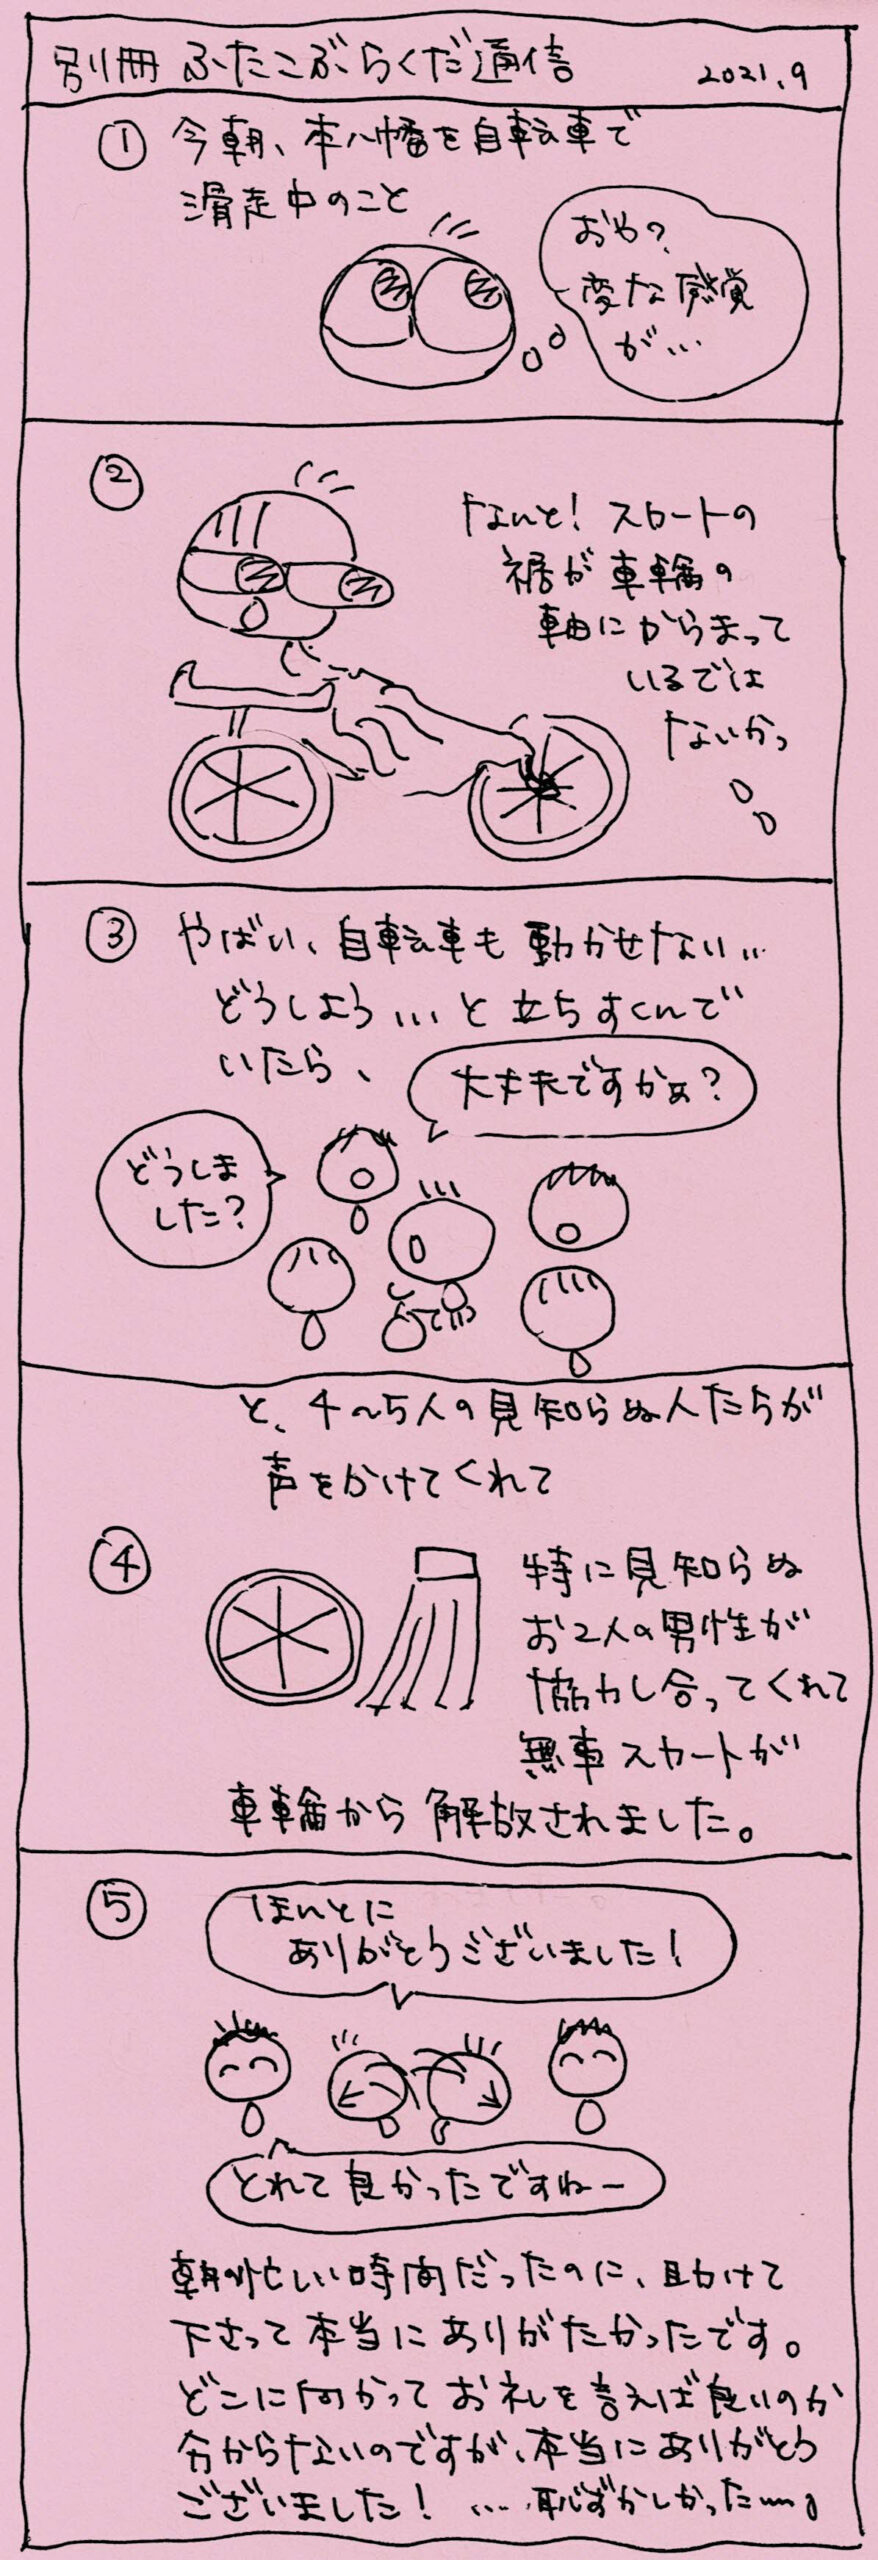 別冊 ふたこぶらくだ通信 2021.9
① 今朝、本八幡を自転車で
滑走中のこと
おや?
変な感覚
が…
②
なんと! スカートの
裾が車輪の
軸にからまって
いるでは
ないかっ
③ やばい、自転車も動かせない…
どうしよう…と立ちすくんで
いたら、
大丈夫ですかぁ?
どうしま
した?
と、4〜5人の見知らぬ人たちが
声をかけてくれて
④
特に見知らぬ
お2人の男性が
協力し合ってくれて
無事スカートが
車輪から解放されました。
⑤
ほんとに
ありがとうございました!
とれて良かったですねー
朝の忙しい時間だったのに、助けて
下さって本当にありがたかったです。
どこに向かってお礼を言えば良いのか
分からないのですが、本当にありがとう
ございました! …恥ずかしかった〜。